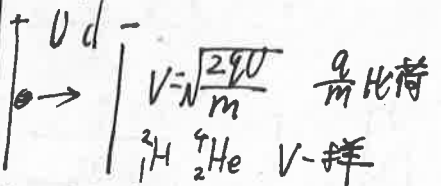 + U d -
V=√(2qU/m) q/m 比荷
²₁H ⁴₂He V一样